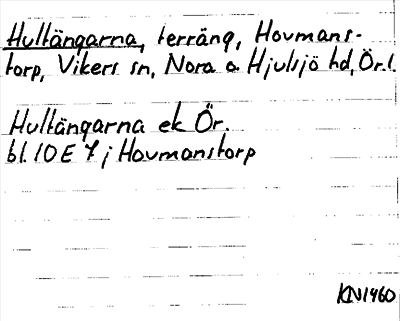 Hultängarna, terräng, Hovmans-
torp, Vikers sn, Nora o Hjulsjö hd, Ör. l.
Hultängarna ek Ör.
bl. 10E 7 j Hovmanstorp
KN1460